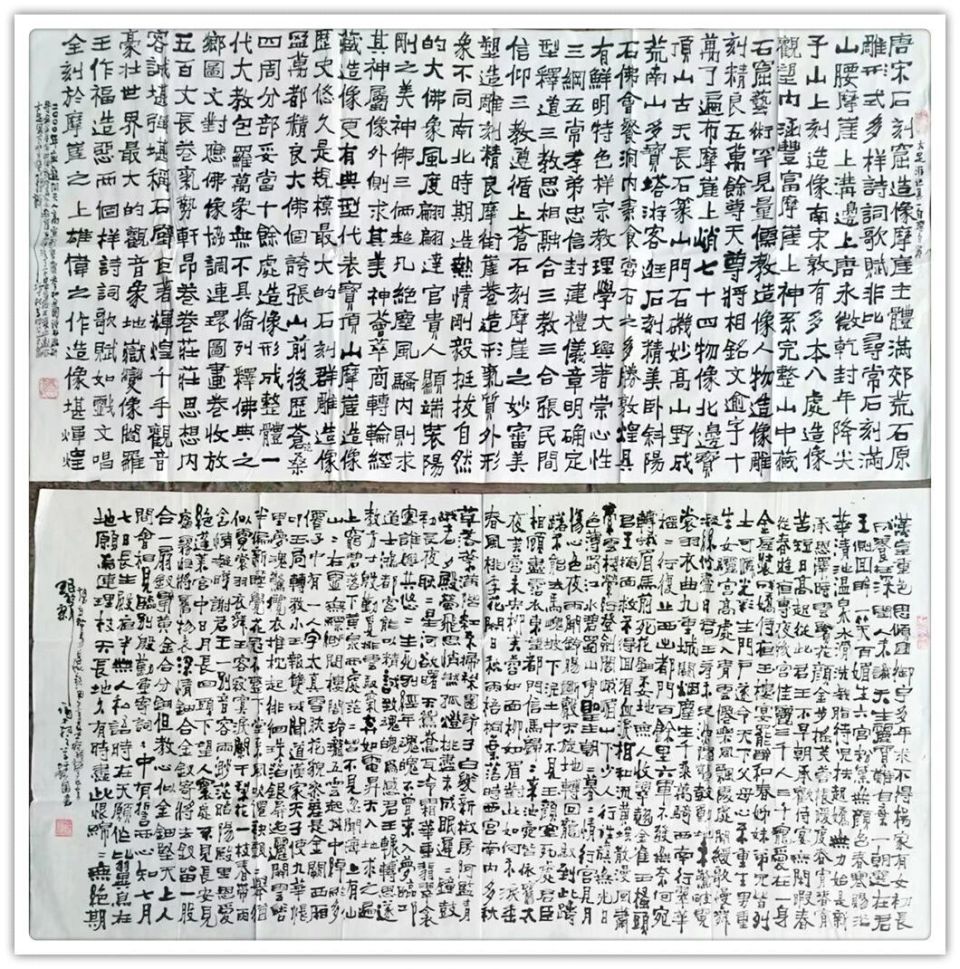 唐宋石刻窟造像摩崖主體滿郊荒石原
雕形式多样詩詞歌賦非比尋常石刻滿
山腰摩崖上溝邊上唐永徽乾封年降尖
子山上刻造像南宋敦有多本八處造像
觀塑内涵豐富摩崖上神系完整山中藏
石窟藝術罕見量儒教造像人物造像雕
刻精良五萬餘尊天尊將相銘文逾字十
萬了遍布摩崖上峭七十四物像北邊寶
頂山古天長石篆山門石磯妙高山野成
荒南山多寶塔游客逛石刻精美卧斜陽
石佛會聚洞内素食雲石之多勝敦煌具
有鮮明特色样宗教理學大興著崇心性
三綱五常孝弟忠信封建禮儀章明确定
型釋道三教思相融合三教三合張民間
信仰三教遵循上蒼石刻摩崖之妙審美
塑造雕刻精良街崖巷造形禀質外形
象不同南北時期造熱情剛毅挺拔自然
的大佛象風度翩翩達官貴人顔端裝陽
剛之美神佛三俩趁丸絶塵風騷内則求
其神屬像外側求其美神薈萃商轉輪經
藏造像更有典型代表寶頂山摩崖造像
歷史悠久是規模最大的石刻群雕造像
萬都精良大佛個誇張山前後歷蒼桑
四周分部妥當十餘處造像形成整體一
代大教包羅萬象無不具備列釋佛典之
鄉圖文對應佛像協調連環圖畫卷收放
五百丈長卷氣勢軒昂卷卷莊莊思想内
容誠堪强堪稱石壁巨著輝煌千手觀音
豪壮世界最大的觀音象地嶽變像閻羅
王作福造惡両個样詩詞歌賦如戲文唱
全刻於摩崖之上雄偉之作造像堪輝煌
漢皇重色思傾國御宇多年求不得楊家有女初長
成養在深閨人不識天生麗質難自棄一朝選在君
王側回眸一笑百媚生六宫粉黛無顔色春寒賜浴
華清池温泉水滑洗凝脂侍兒扶起嬌無力始是新
承恩澤時雲鬢花顔金步摇芙蓉帳暖度春宵春宵
苦短日高起從此君王不早朝承歡侍宴無閒暇春
從春遊夜專夜後宫佳麗三千人三千寵愛在一身
金屋妝成嬌侍夜玉樓宴罷醉和春姊妹弟兄皆列
土可憐光彩生門戶遂令天下父母心不重生男重
生女驪宫高處入青雲仙樂風飄處處聞緩歌慢舞
凝絲竹盡日君王看不足漁陽鼙鼓動地來驚破霓
裳羽衣曲九重城闕煙塵生千乘萬騎西南行翠華
摇〻行復止西出都門百餘里六軍不發無奈何宛
轉蛾眉馬前死花鈿委地無人收翠翹金雀玉搔頭
君王掩面救不得回看血淚相和流黄埃散漫風蕭
索雲棧縈紆登劍閣峨嵋山下少人行旌旗無光日
色薄蜀江水碧蜀山青聖主朝〻暮〻情行宫見月
傷心色夜雨聞鈴腸斷聲天旋地轉回龍馭到此躊
躇不能去馬嵬坡下泥土中不見玉顔空死處君臣
相顧盡霑衣東望都門信馬歸〻來池苑皆依舊太
液芙蓉未央柳芙蓉如面柳如眉對此如何不淚垂
春風桃李花開日秋雨梧桐葉落時西宫南内多秋
草落葉滿階紅不掃梨園弟子白髮新椒房阿監青
娥老夕殿螢飛思悄然孤燈挑盡未成眠遲〻鐘鼓
初長夜耿〻星河欲曙天鴛鴦瓦冷霜華重翡翠衾
寒誰與共悠〻生死别經年魂魄不曾來入夢臨邛
道士鴻都客能以精誠致魂魄爲感君王輾轉思遂
教方士殷勤覓排雲馭氣奔如電昇天入地求之遍
上窮碧落下黄泉兩處茫〻皆不見忽聞海上有仙
山〻在虚無縹緲間樓閣玲瓏五雲起其中綽約多
仙子中有一人字太真雪膚花貌參差是金闕西廂
叩玉扃轉教小玉報雙成聞道漢家天子使九華帳
裏夢魂驚攬衣推枕起徘徊珠箔銀屏迤邐開雲鬢
半偏新睡覺花冠不整下堂來風吹仙袂飄〻舉猶
似霓裳羽衣舞玉容寂寞淚闌干梨花一枝春帶雨
含情凝睇謝君王一别音容兩渺茫昭陽殿裏恩愛
絶蓬萊宫中日月長回頭下望人寰處不見長安見
塵霧惟將舊物表深情鈿合金釵寄將去釵留一股
合一扇釵擘黄金合分鈿但教心似金鈿堅天上人
間會相見臨别殷勤重寄詞〻中有誓兩心知七月
七日長生殿夜半無人私語時在天願作比翼鳥在
地願爲連理枝天長地久有時盡此恨綿〻無絶期